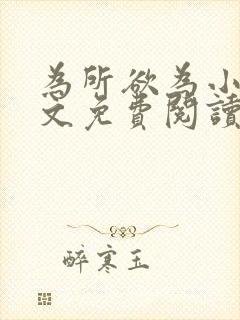 為所欲為小
文免費閱讀
醉寒玉